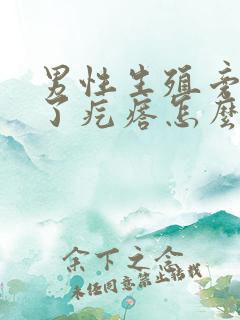 男性生殖旁
了疙瘩怎麼
余下之念
未经同意禁止转载